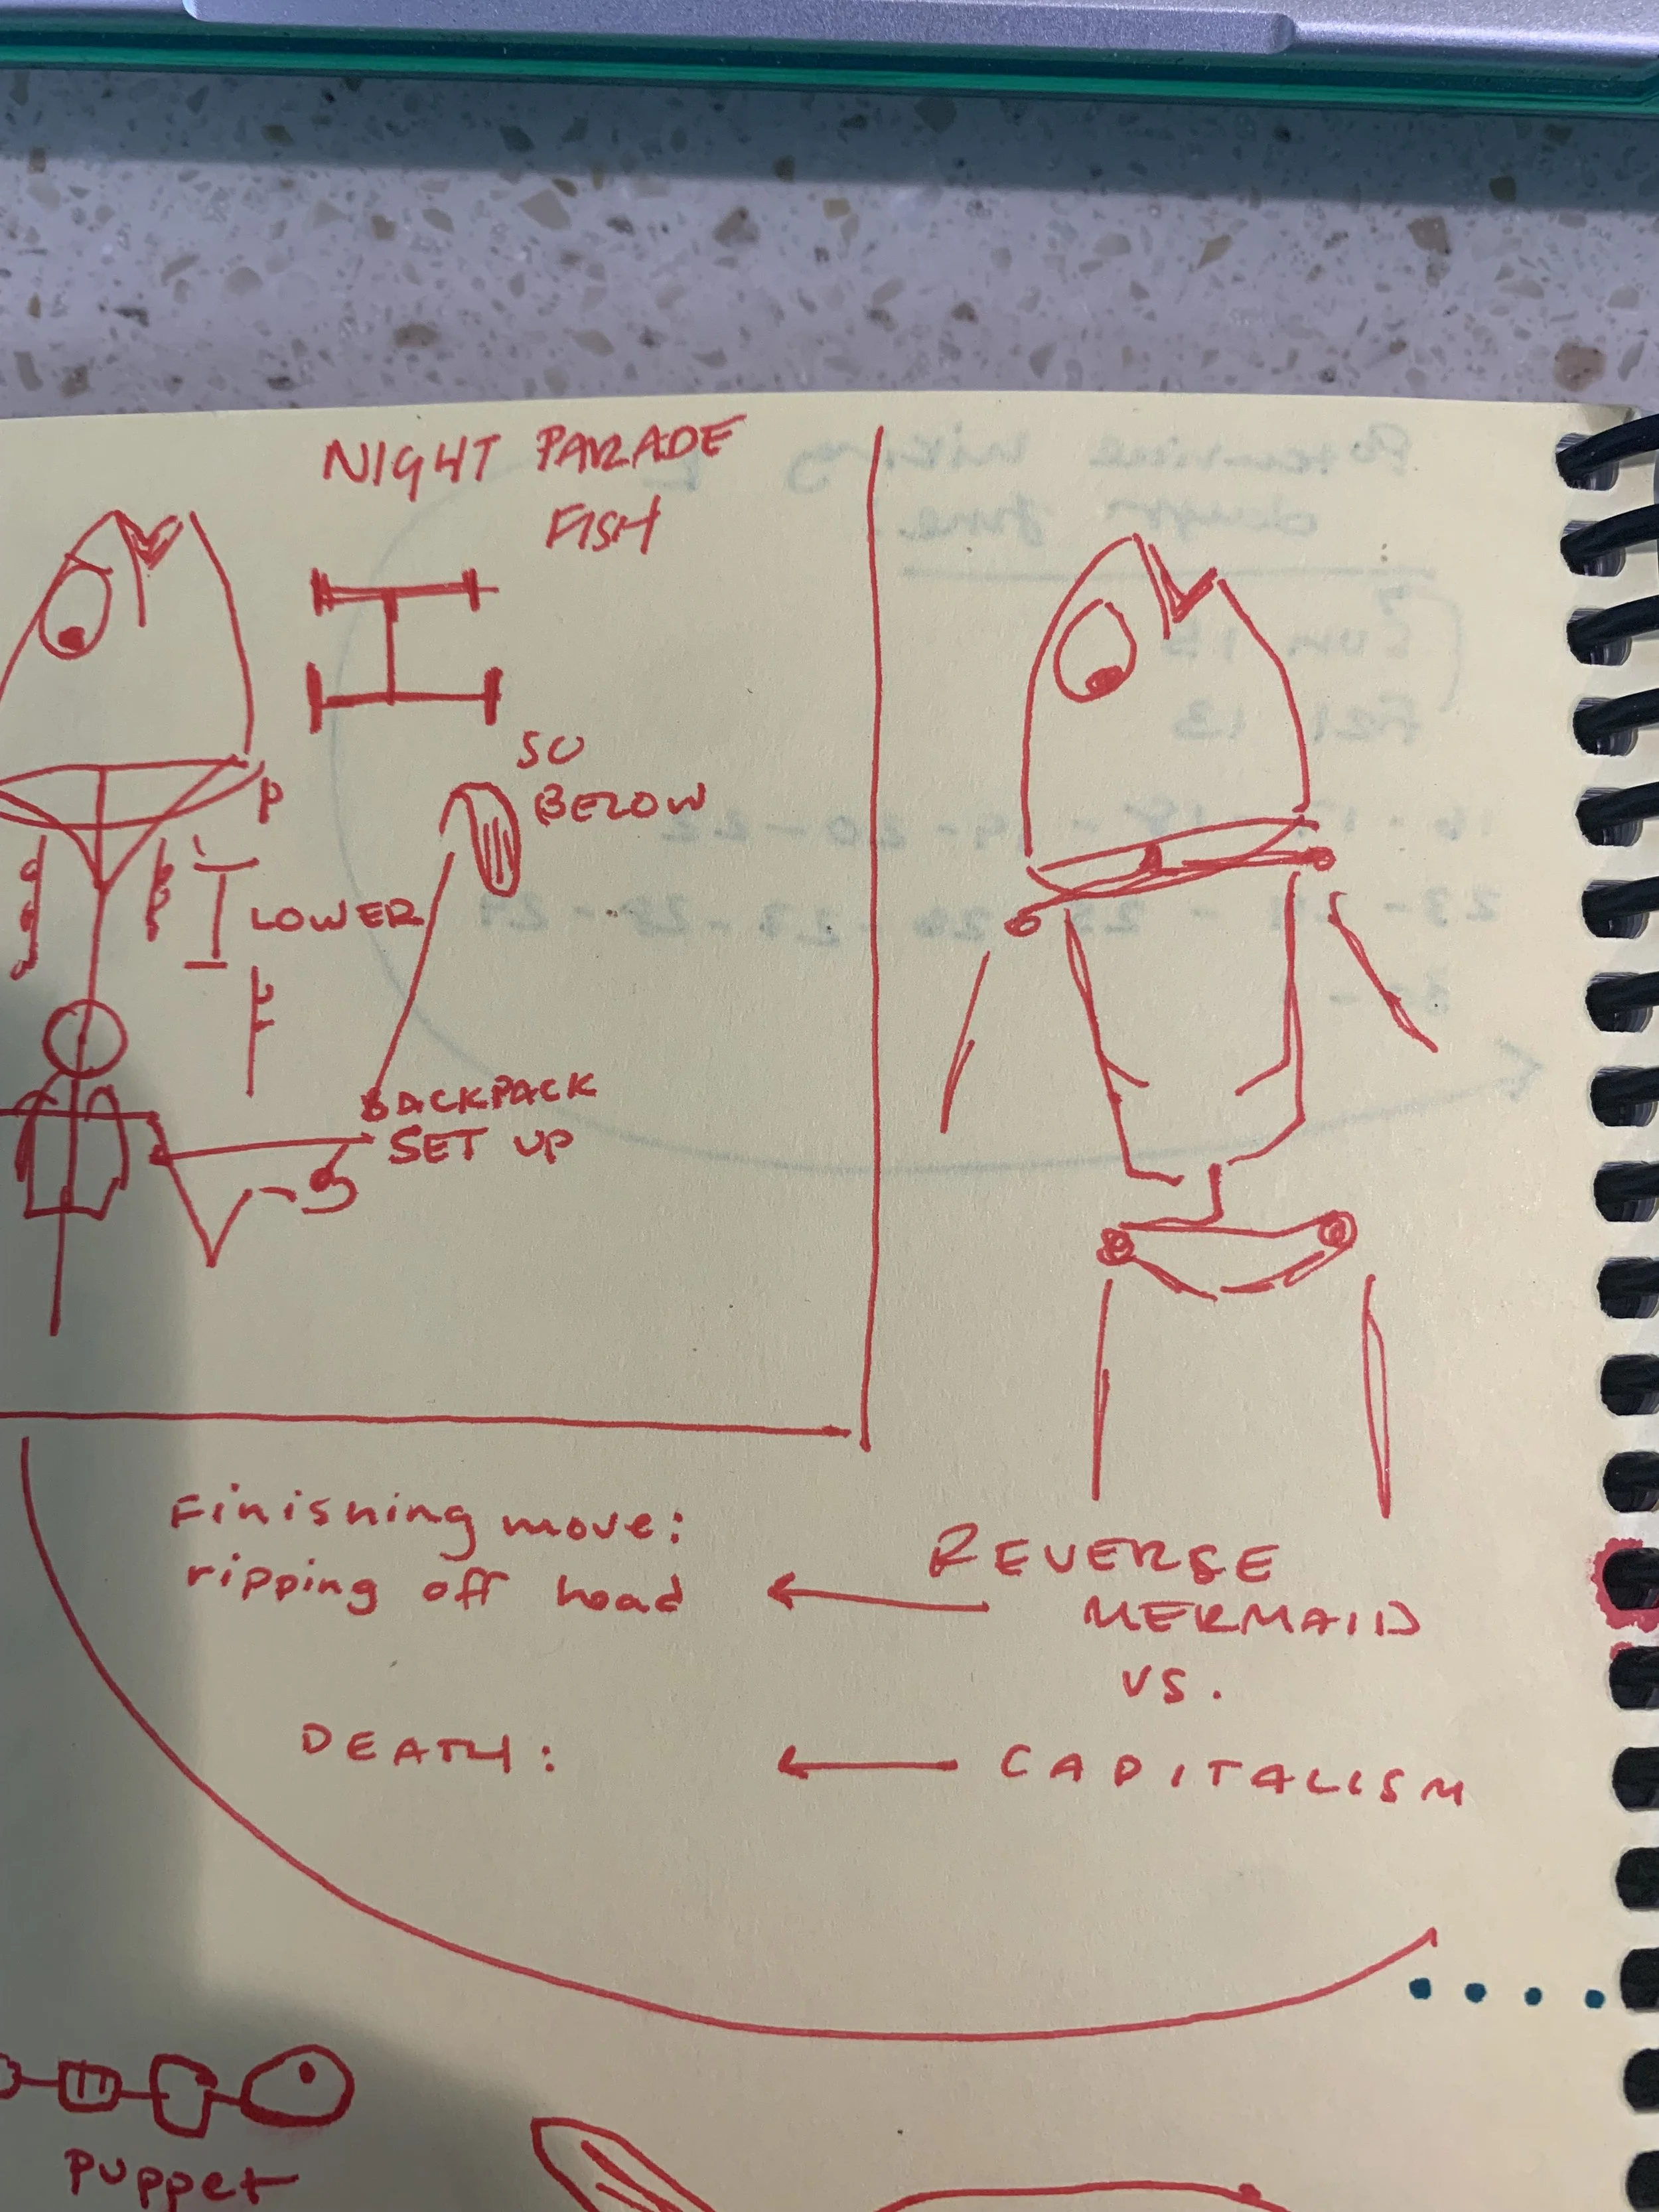 NIGHT PARADE
FISH
SO
BELOW
P
LOWER
BACKPACK
SET UP
Finishing move:
ripping off head
REVERSE
MERMAID
VS.
DEATH:
CAPITALISM
puppet